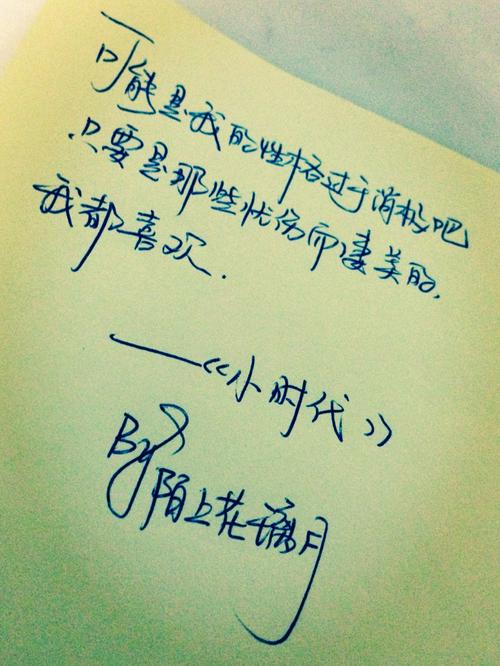 可能是我的性格过于消极吧
只要是那些忧伤而凄美的,
我都喜欢.
——《小时代》
By 陌上花满月